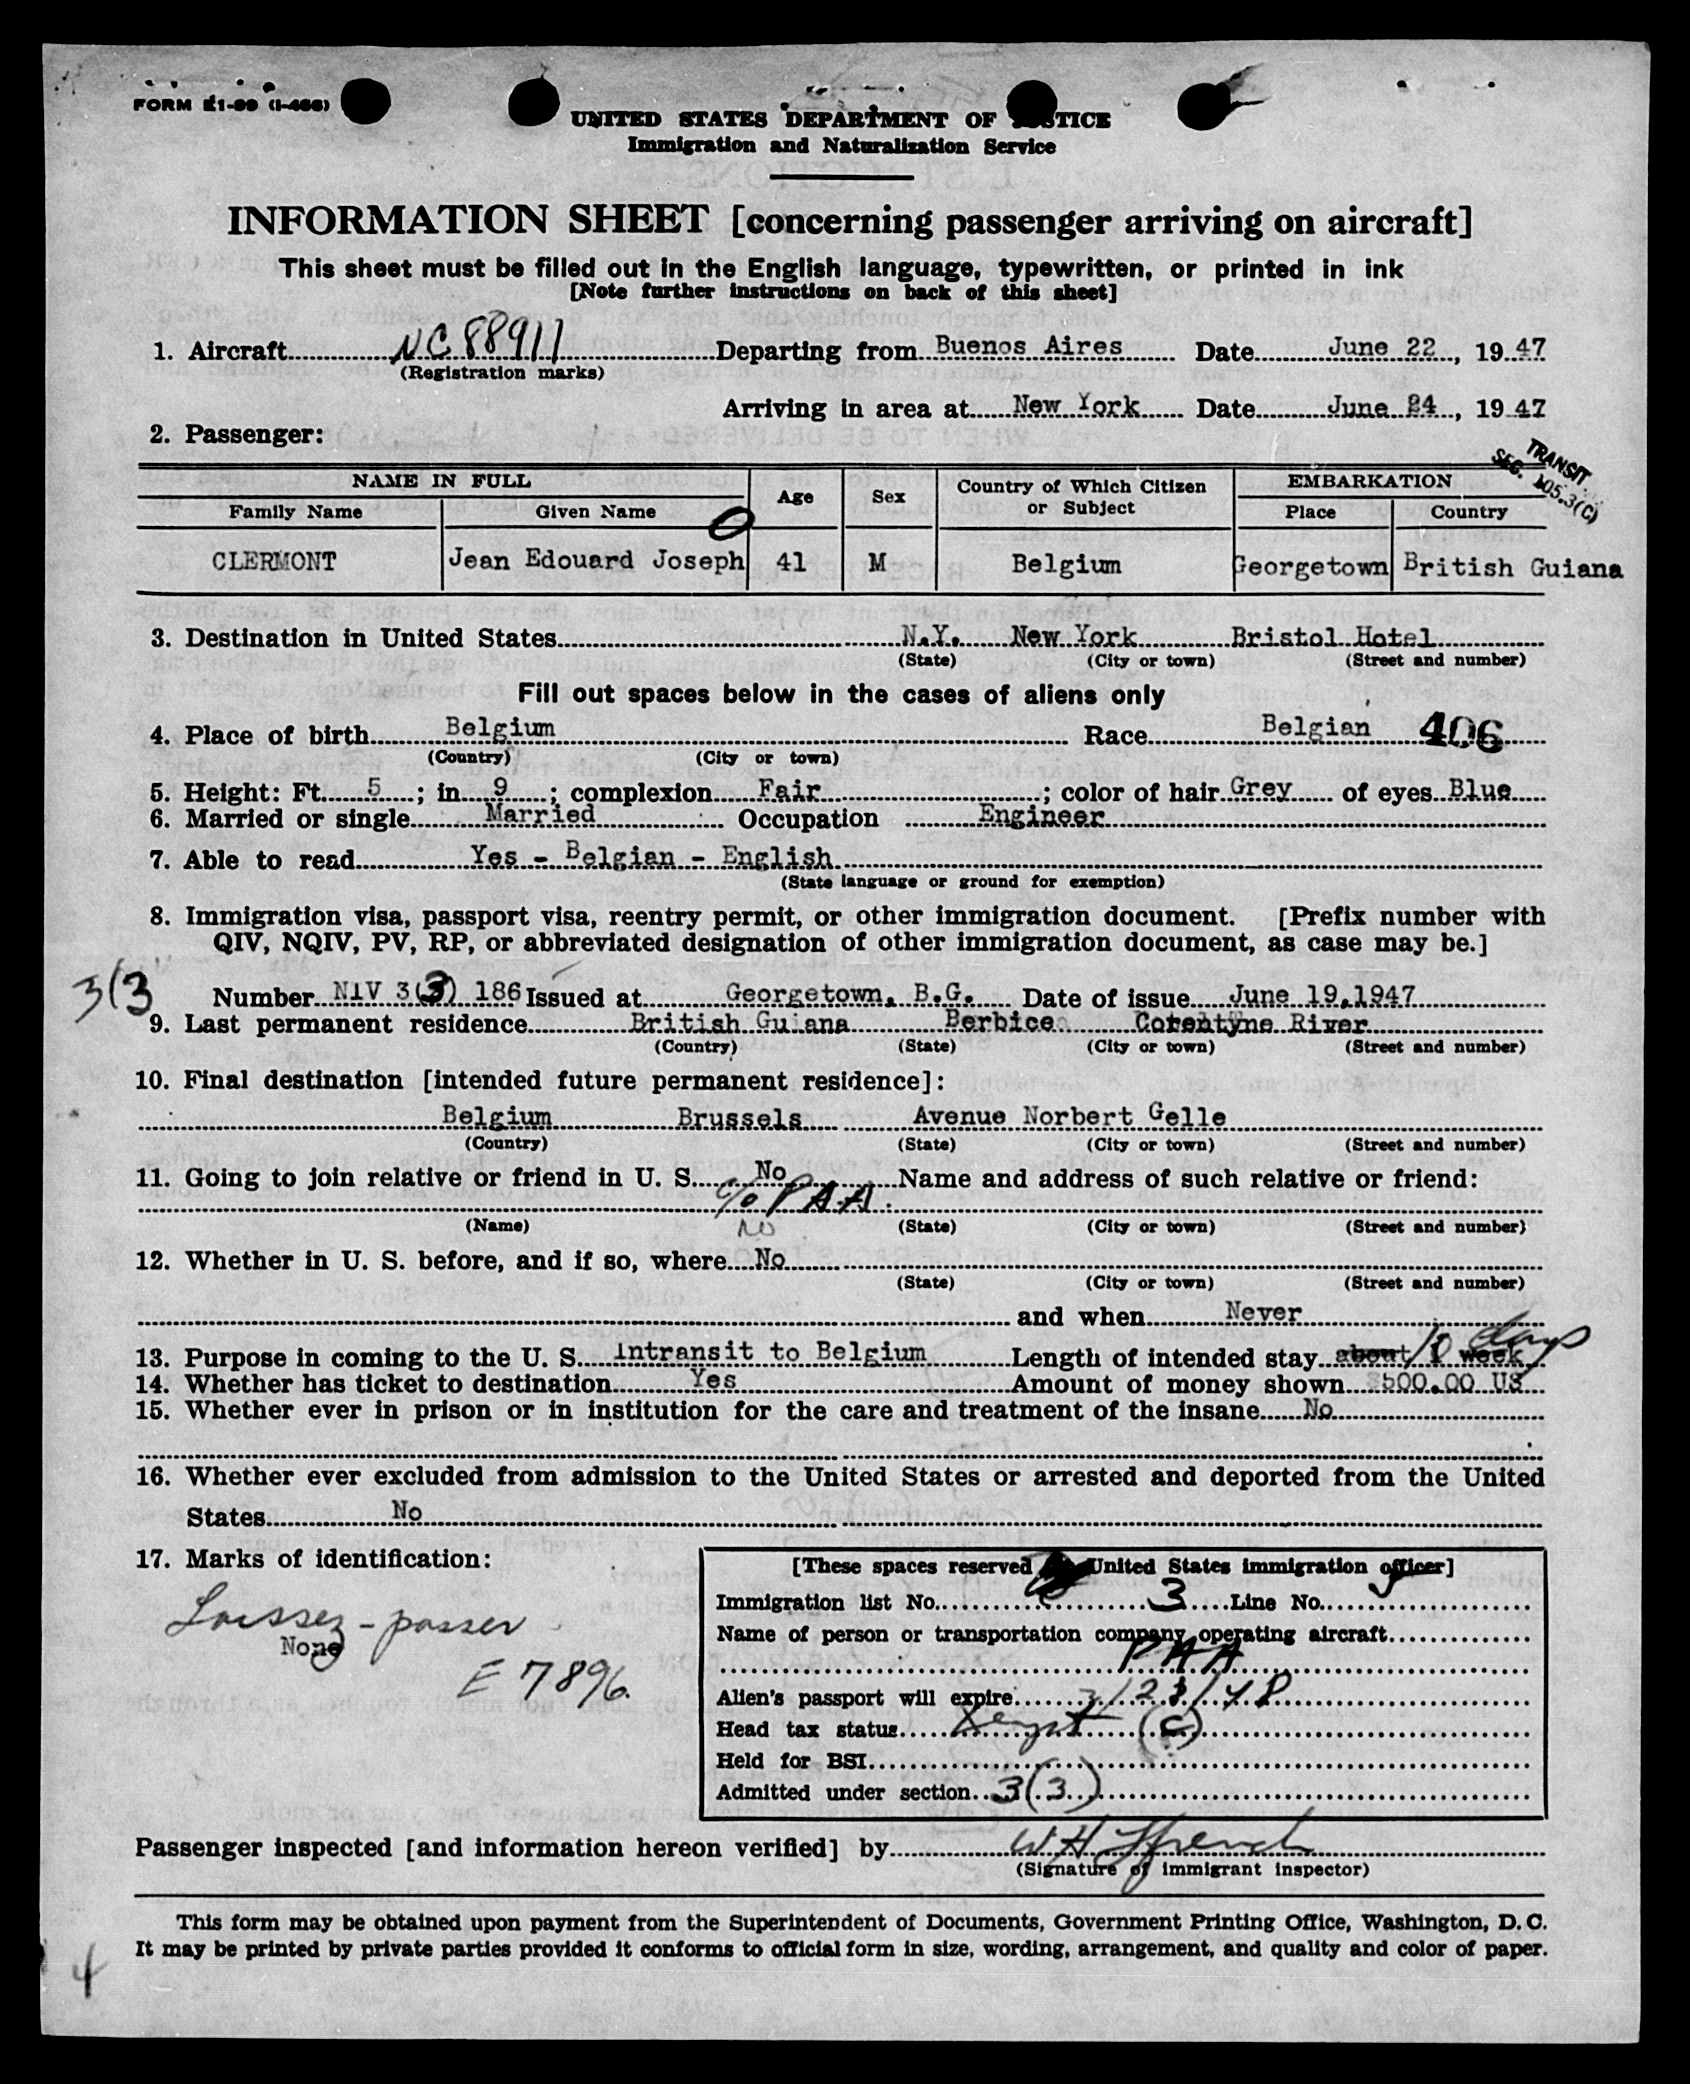 FORM (I-466)
UNITED STATES DEPARTMENT OF JUSTICE
Immigration and Naturalization Service
INFORMATION SHEET [concerning passenger arriving on aircraft]
This sheet must be filled out in the English language, typewritten, or printed in ink
[Note further instructions on back of this sheet]
1. Aircraft NC 88911 Departing from Buenos Aires Date June 22, 1947
(Registration marks)
Arriving in area at New York Date June 24, 1947
2. Passenger:
TRANSIT
SEC. 105.3(C)
NAME IN FULL Age Sex Country of Which Citizen or Subject EMBARKATION
Family Name Given Name Place Country
CLERMONT Jean Edouard Joseph 41 M Belgium Georgetown British Guiana
3. Destination in United States N.Y. New York Bristol Hotel
(State) (City or town) (Street and number)
Fill out spaces below in the cases of aliens only
4. Place of birth Belgium Race Belgian 406
(Country) (City or town)
5. Height: Ft. 5; in. 9; complexion Fair; color of hair Grey of eyes Blue
6. Married or single Married Occupation Engineer
7. Able to read Yes - Belgian - English
(State language or ground for exemption)
8. Immigration visa, passport visa, reentry permit, or other immigration document. [Prefix number with
QIV, NQIV, PV, RP, or abbreviated designation of other immigration document, as case may be.]
3(3
Number NIV 3(3) 186 Issued at Georgetown, B.G. Date of issue June 19,1947
9. Last permanent residence British Guiana Berbice Corentyne River
(Country) (State) (City or town) (Street and number)
10. Final destination [intended future permanent residence]:
Belgium Brussels Avenue Norbert Gelle
(Country) (State) (City or town) (Street and number)
11. Going to join relative or friend in U. S. No Name and address of such relative or friend:
c/o P A A.
(Name) No (State) (City or town) (Street and number)
12. Whether in U. S. before, and if so, where No
(State) (City or town) (Street and number)
and when Never
13. Purpose in coming to the U. S. Intransit to Belgium Length of intended stay about 1 week 10 days
14. Whether has ticket to destination Yes Amount of money shown $500.00 US
15. Whether ever in prison or in institution for the care and treatment of the insane No
16. Whether ever excluded from admission to the United States or arrested and deported from the United
States No
17. Marks of identification:
Laissez-passer
None
E 7896.
[These spaces reserved United States immigration officer]
Immigration list No. 3 Line No.
Name of person or transportation company operating aircraft
PAA
Alien's passport will expire
Head tax status (C)
Held for BSI
Admitted under section 3(3)
Passenger inspected [and information hereon verified] by W H Ffrench
(Signature of immigrant inspector)
This form may be obtained upon payment from the Superintendent of Documents, Government Printing Office, Washington, D. C.
It may be printed by private parties provided it conforms to official form in size, wording, arrangement, and quality and color of paper.
4